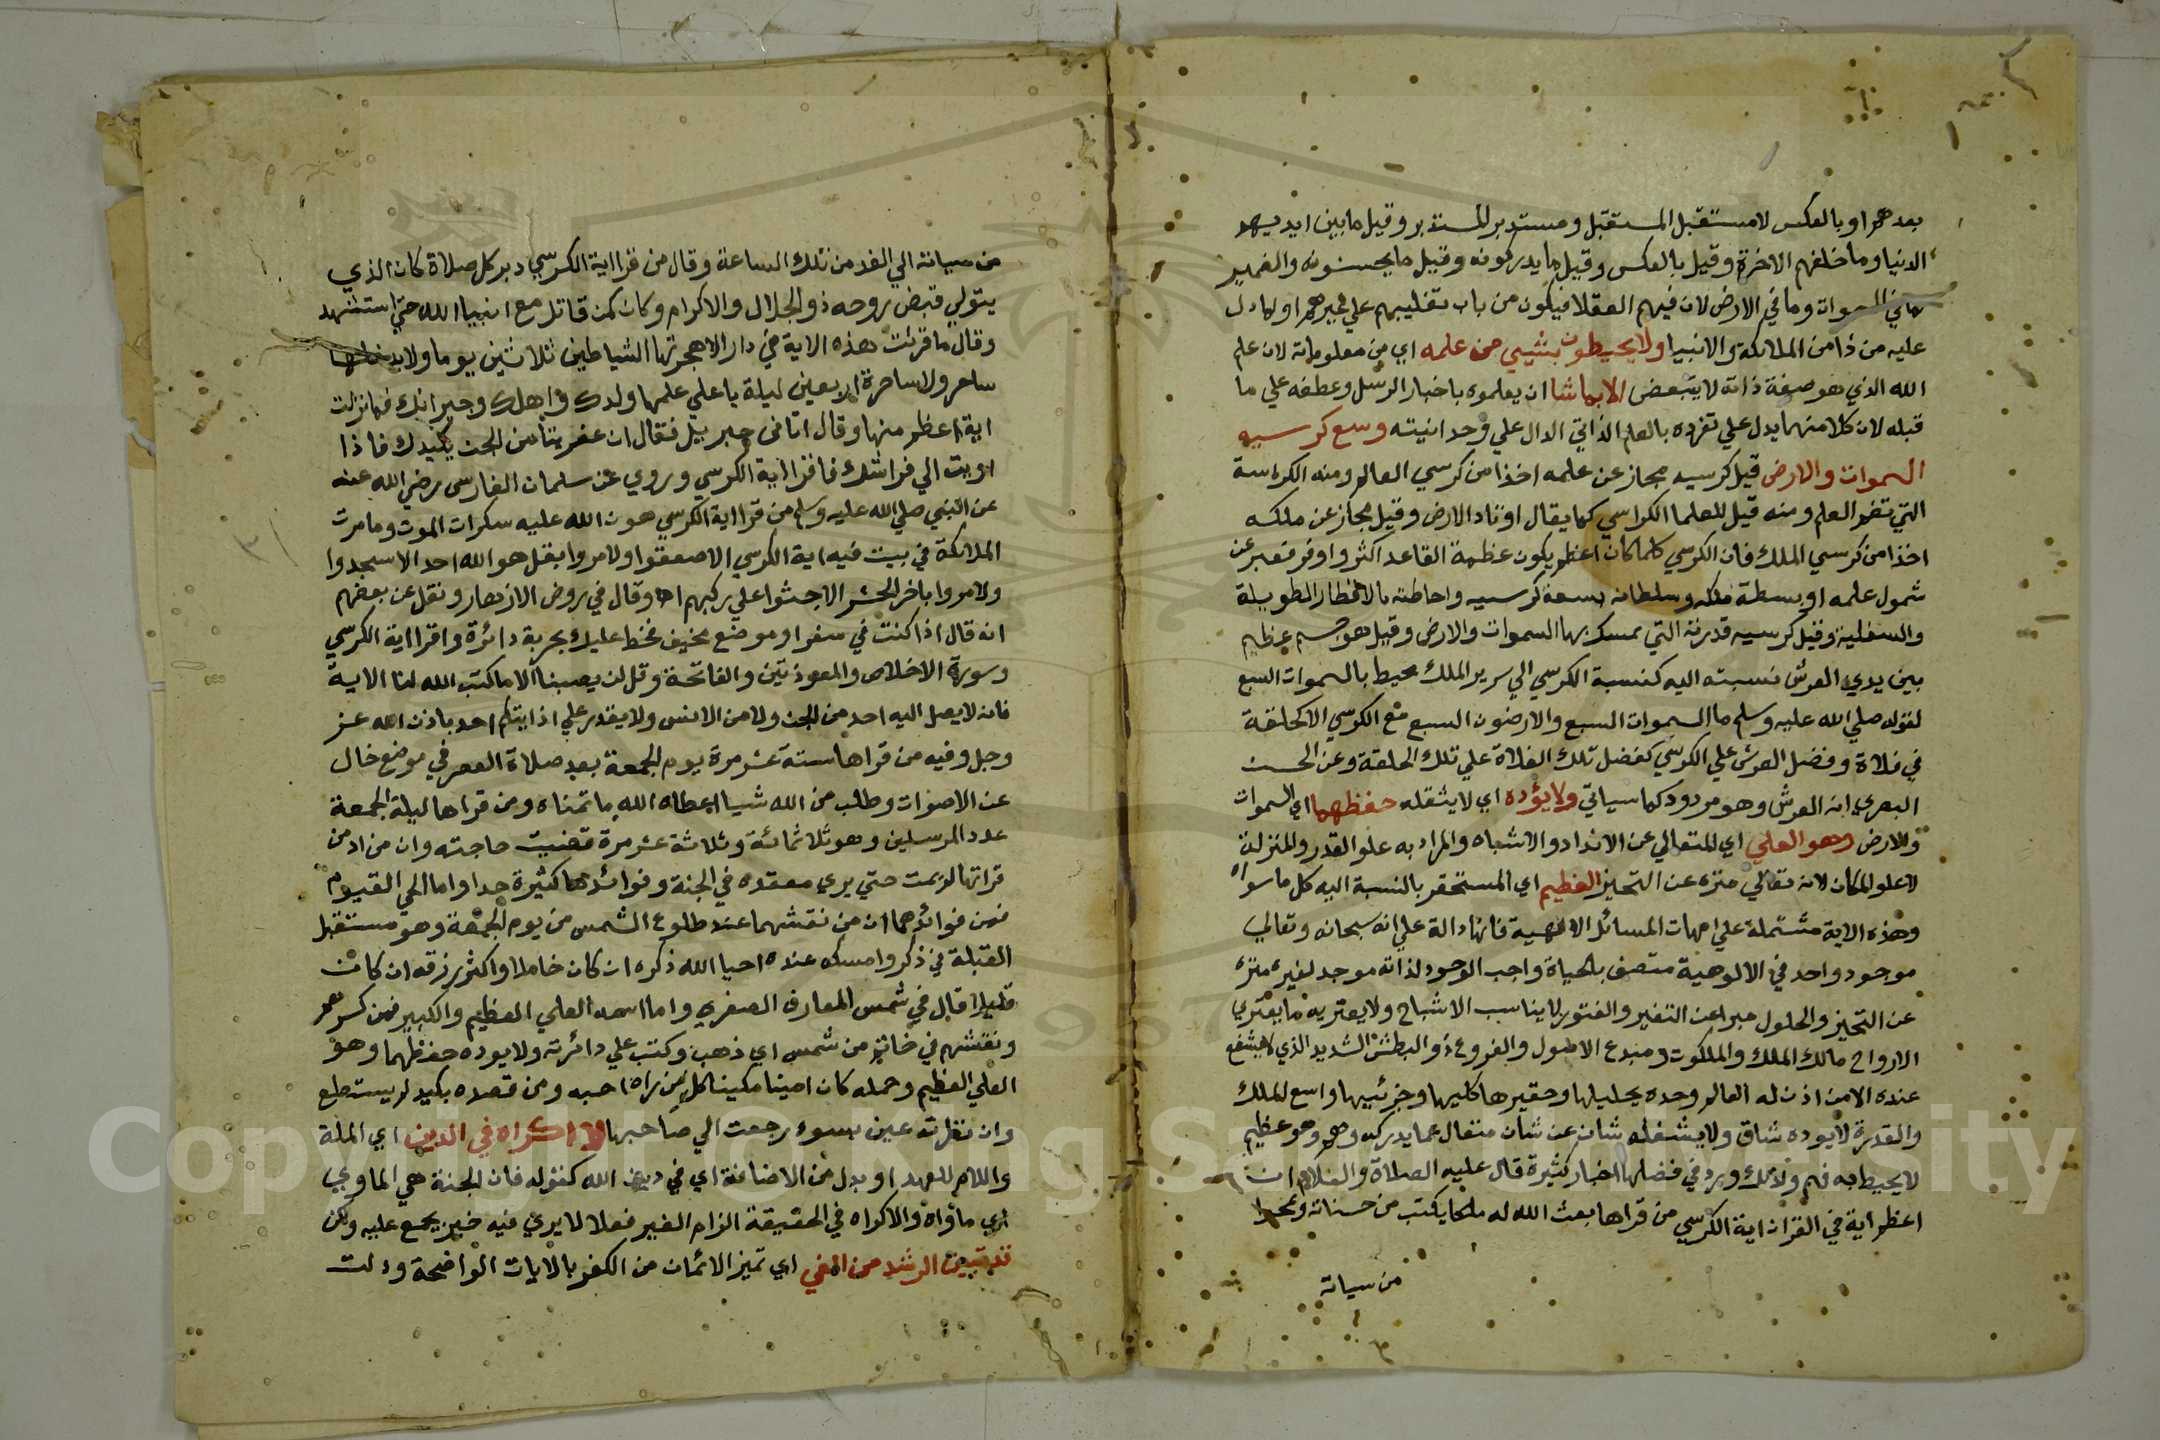 بعدهم او بالعكس لا مستقبل المستقبل ومستدبر المستدبر وقيل ما بين ايديهم
الدنيا وما خلفهم الاخرة وقيل بالعكس وقيل ما يدركونه وقيل ما يحسنونه والضمير
لما في السموات وما في الارض لان فيهم العقلا فيكون من باب تغليبهم علي غيرهم او لما دل
عليه من ذا من الملائكة والانبيا ولا يحيطون بشيي من علمه اي من معلوماته لان علم
الله الذي هو صفة ذاته لا يتبعض الا بما شا ان يعلموه باخبار الرسل وعطفه علي ما
قبله لان كلا منهما يدل علي تفرده بالعلم الذاتي الدال علي وحدانيته وسع كرسيه
السموات والارض قيل كرسيه مجاز عن علمه اخذا من كرسي العالم ومنه الكراسة
التي تضم العلم ومنه قيل للعلما الكراسي كما يقال اوتاد الارض وقيل مجاز عن ملكه
اخذا من كرسي الملك فان الكرسي كلما كان اعظم يكون عظمة القاعد اكثر واوفر فعبر عن
شمول علمه او بسطة ملكه وسلطانه بسعة كرسيه واحاطته بالاقطار الطويلة
والسفلية وقيل كرسيه قدرته التي يمسك بها السموات والارض وقيل هو جسم عظيم
بين يدي العرش نسبته اليه كنسبة الكرسي الي سرير الملك محيط بالسموات السبع
لقوله صلي الله عليه وسلم ما السموات السبع والارضون السبع مع الكرسي الا كحلقة
في فلاة وفضل العرش علي الكرسي كفضل تلك الفلاة علي تلك الحلقة وعن الحسن
البصري انه العرش وهو مردود كما سياتي ولا يؤده اي لا يثقله حفظهما اي السموات
والارض وهو العلي اي المتعالي عن الانداد والاشباه والمراد به علو القدر والمنزلة
لا علو المكان لانه تعالي منزه عن التحيز العظيم اي المستحقر بالنسبة اليه كل ما سواه
وهذه الاية مشتملة علي امهات المسائل الالهية فانها دالة علي انه سبحانه وتعالي
موجود واحد في الالوهية متصف بالحياة واجب الوجود لذاته موجد لغيره منزه
عن التحيز والحلول مبرا عن التغير والفتور لا يناسب الاشباح ولا يعتريه ما يعتري
الارواح مالك الملك والملكوت ومبدع الاصول والفروع ذو البطش الشديد الذي لا يشفع
عنده الا من اذن له العالم وحده بجليلها وحقيرها كليها وجزئيها واسع الملك
والقدرة لا يؤده شاق ولا يشغله شان عن شان متعال عما يدركه وهم وهو عظيم
لا يحيط به فهم ولذلك ورد في فضلها اخبار كثيرة قال عليه الصلاة والسلام ان
اعظم اية في القران اية الكرسي من قراها بعث الله له ملكا يكتب من حسناته ويمحو
من سياته
من سياته الي الغد من تلك الساعة وقال من قرا اية الكرسي دبر كل صلاة كان الذي
يتولي قبض روحه ذو الجلال والاكرام وكان كمن قاتل مع انبيا الله حتي استشهد
وقال ما قرئت هذه الاية في دار الا هجرتها الشياطين ثلاثين يوما ولا يدخلها
ساحر ولا ساحرة اربعين ليلة يا علي علمها ولدك واهلك وجيرانك فما نزلت
اية اعظم منها وقال اتاني جبريل فقال ان عفريتا من الجن يكيدك فاذا
اويت الي فراشك فاقرا اية الكرسي وروي عن سلمان الفارسي رضي الله عنه
عن النبي صلي الله عليه وسلم من قرا اية الكرسي هون الله عليه سكرات الموت وما مرت
الملائكة في بيت فيه اية الكرسي الا صعقوا ولا مروا بقل هو الله احد الا سجدوا
ولا مروا باخر الحشر الا جثوا علي ركبهم اه وقال في روض الازهار ونقل عن بعضهم
انه قال اذا كنت في سفر او موضع مخيف فخط عليك بحربة دائرة واقرا اية الكرسي
وسورة الاخلاص والمعوذتين والفاتحة وقل لن يصيبنا الا ما كتب الله لنا الاية
فانه لا يصل اليه احد من الجن ولا من الانس ولا يقدر علي اذايتكم احد باذن الله عز
وجل وفيه من قراها ستة عشر مرة يوم الجمعة بعد صلاة العصر في موضع خال
عن الاصوات وطلب من الله شيا اعطاه الله ما تمناه ومن قراها ليلة الجمعة
عدد المرسلين وهو ثلاثمائة وثلاثة عشر مرة قضيت حاجته وان من ادمن
قراتها لم يمت حتي يري مقعده في الجنة وفوائدها كثيرة جدا واما الحي القيوم
فمن فوائدهما ان من نقشهما عند طلوع الشمس من يوم الجمعة وهو مستقبل
القبلة في ذكر وامسكه عنده احيا الله ذكره ان كان خاملا واكثر رزقه ان كان
قليلا قال في شمس المعارف الصغري واما اسمه العلي العظيم والكبير فمن كسرهم
ونقشهم في خاتم من شمس اي ذهب وكتب علي دائرته ولا يوده حفظهما وهو
العلي العظيم وحمله كان امينا مكينا كل من راه احبه ومن قصده بكيد لم يستطع
وان نظرته عين بسوء رجعت الي صاحبها لا اكراه في الدين اي الملة
واللام للعهد او بدل من الاضافة اي في دين الله كقوله فان الجنة هي الماوي
اي ماواه والاكراه في الحقيقة الزام الغير فعلا لا يري فيه خيرا يحمع عليه ولكن
قد تبين الرشد من الغي اي تميز الايمان من الكفر بالايات الواضحة ودلت
Copyright © King Saud University